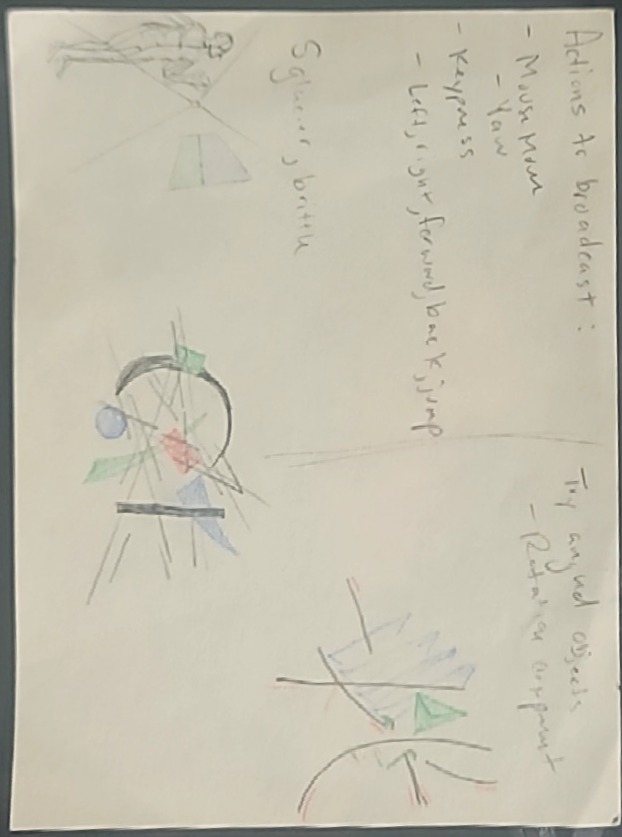 Actions to broadcast:
- Mouse Move
- Yaw
- Keypress
- Left, right, forward, back, jump
, brittle
- Try angled objects
- Rotation argument